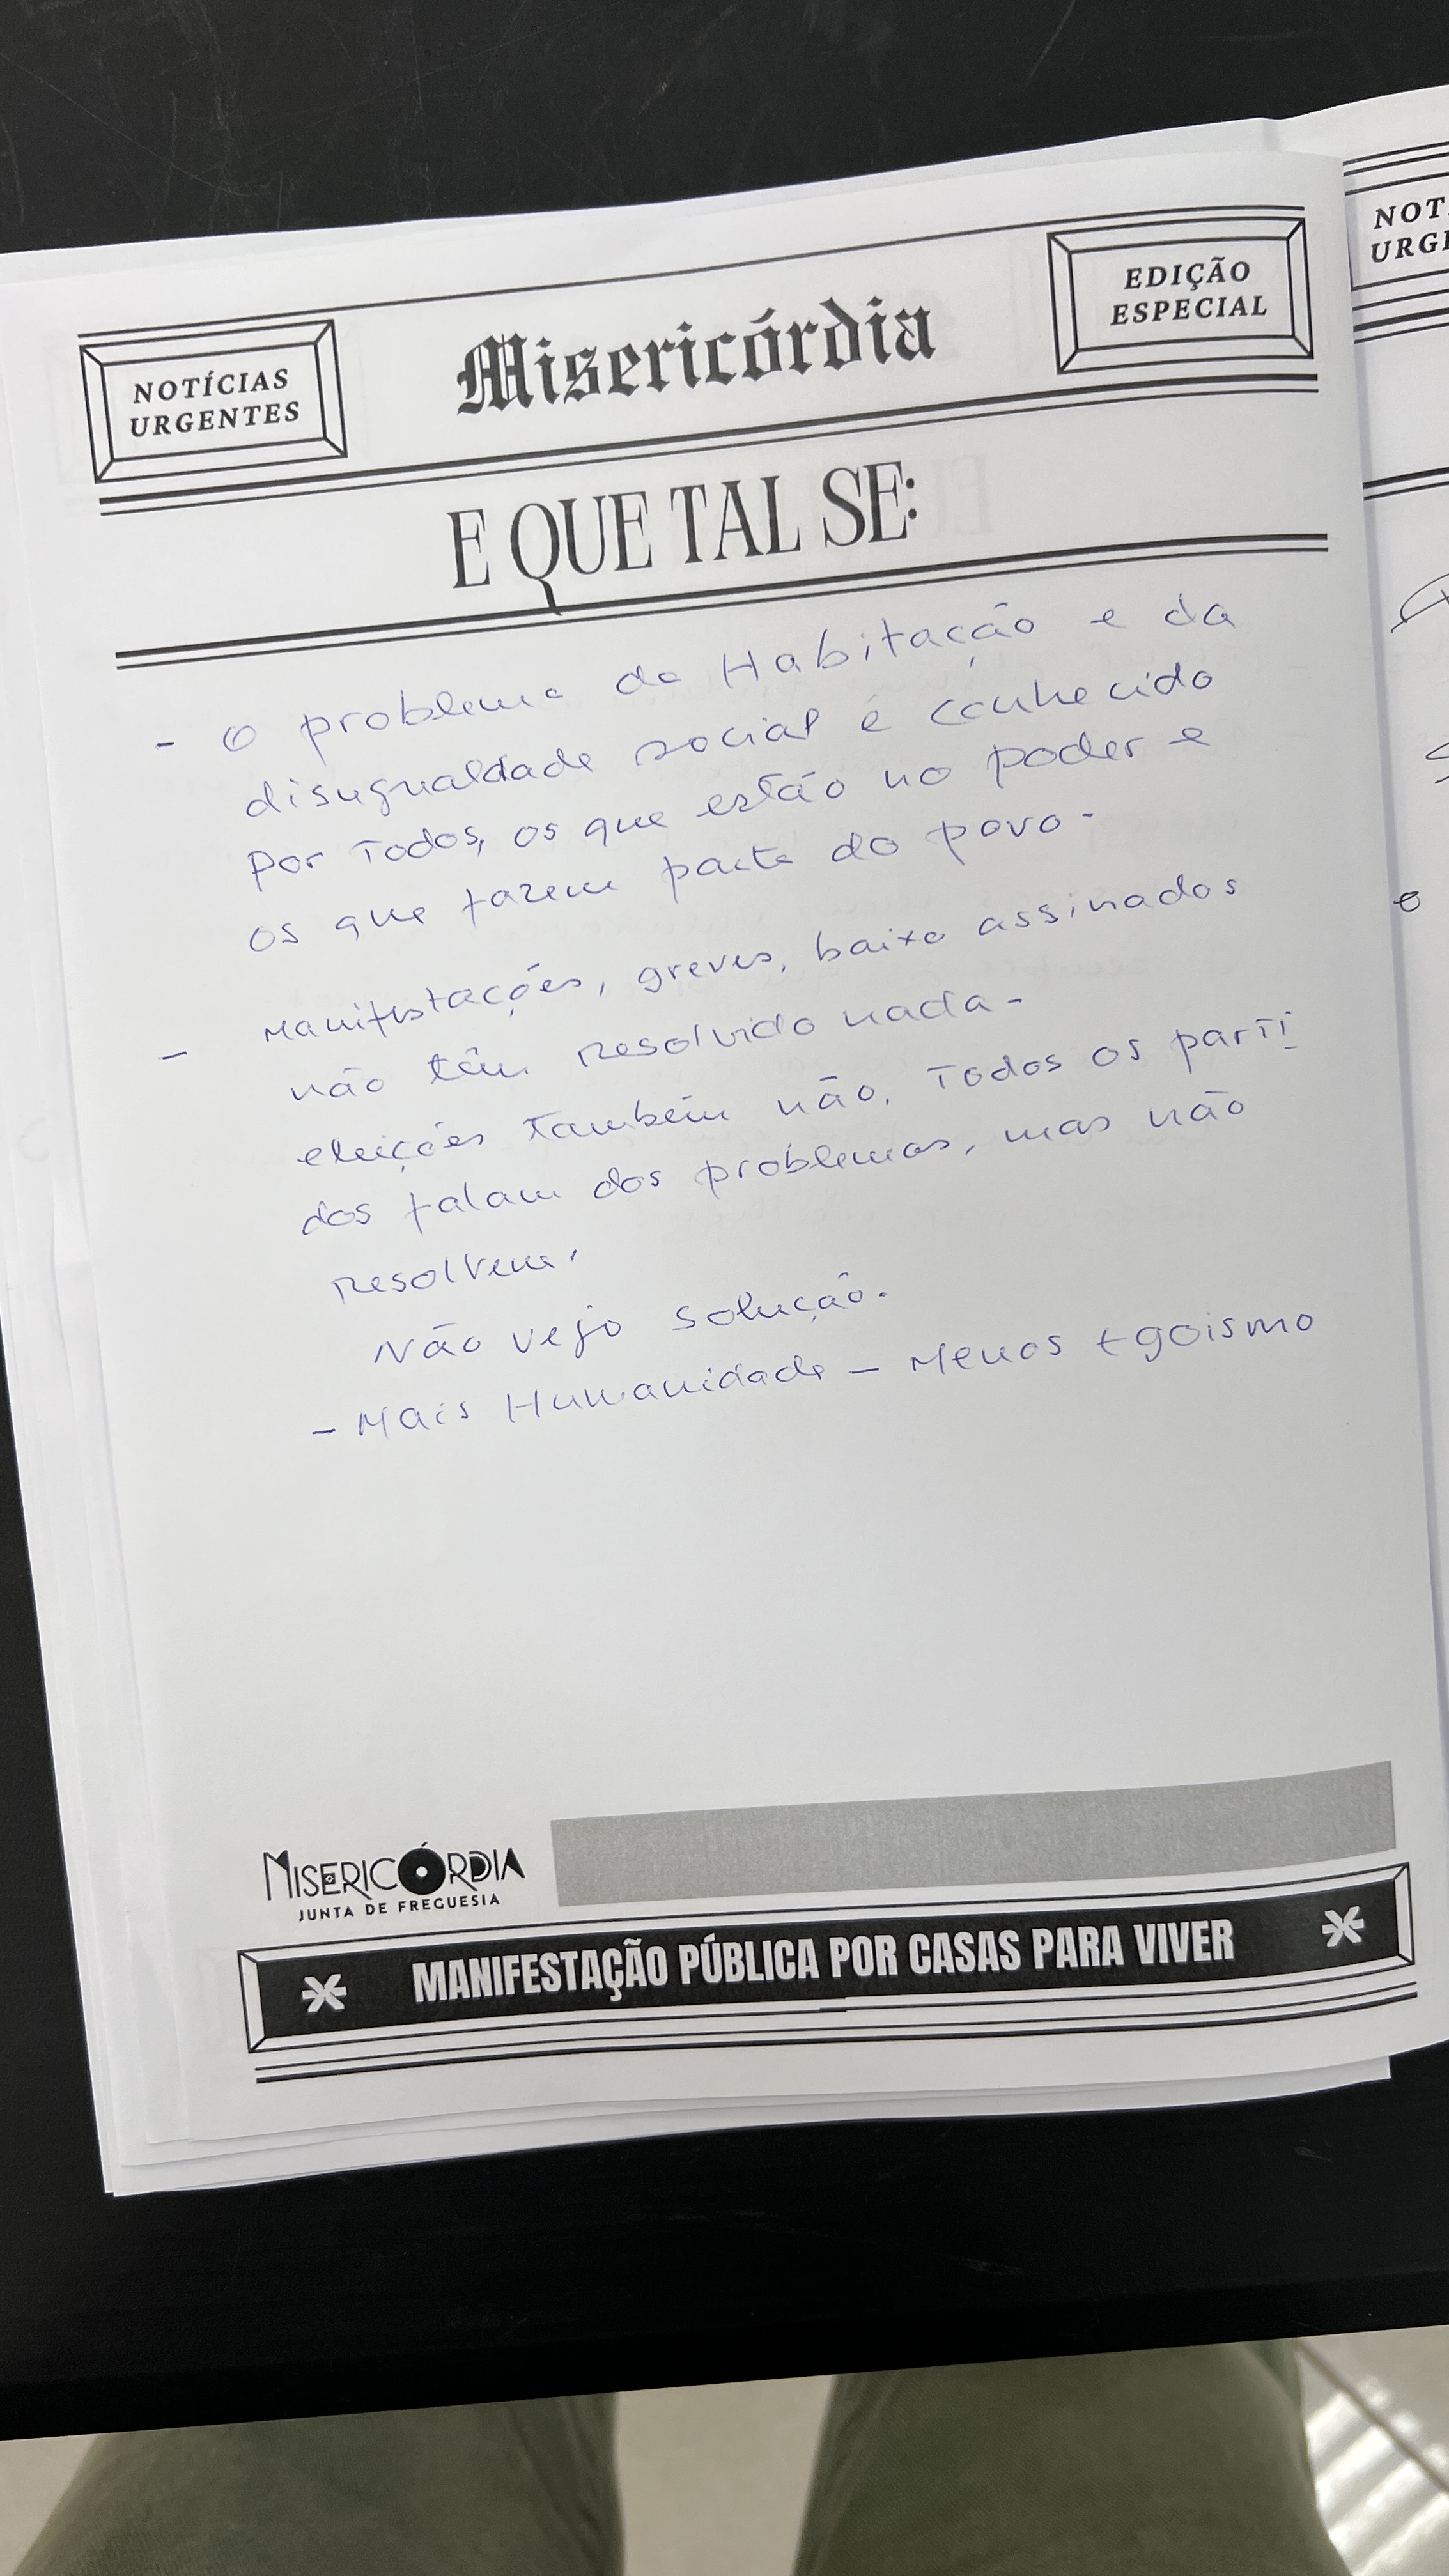 NOTÍCIAS
URGENTES
Misericórdia
EDIÇÃO
ESPECIAL
NOT
URGE
E QUE TAL SE:
- O problema da Habitação e da
disugualdade social é conhecido
por Todos, os que estão no poder e
os que fazem parte do povo -
- Manifestações, greves, baixo assinados
não têm resolvido nada -
eleições também não. Todos os parti
dos falam dos problemas, mas não
resolvem.
Não vejo solução.
- Mais Humanidade - Menos Egoismo
MISERICÓRDIA
JUNTA DE FREGUESIA
MANIFESTAÇÃO PÚBLICA POR CASAS PARA VIVER